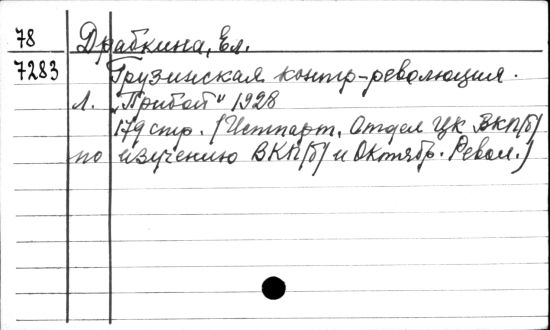 78 Драбкина, Ел.
7283 Грузинская контр-революция.
Л. „Прибой" 1928
179 стр. (Истпарт. Отдел ЦК ВКП(б)
по изучению ВКП(б) и Октябр. Револ.)